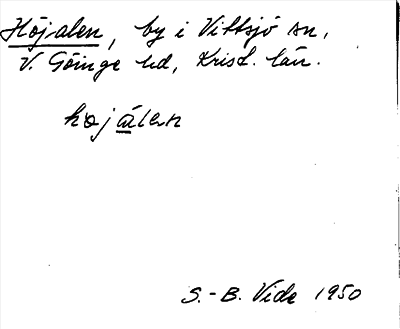 Höjalen, by i Vittsjö sn,
V. Göinge hd, Krist. län.
højálen
S.-B. Vide 1950